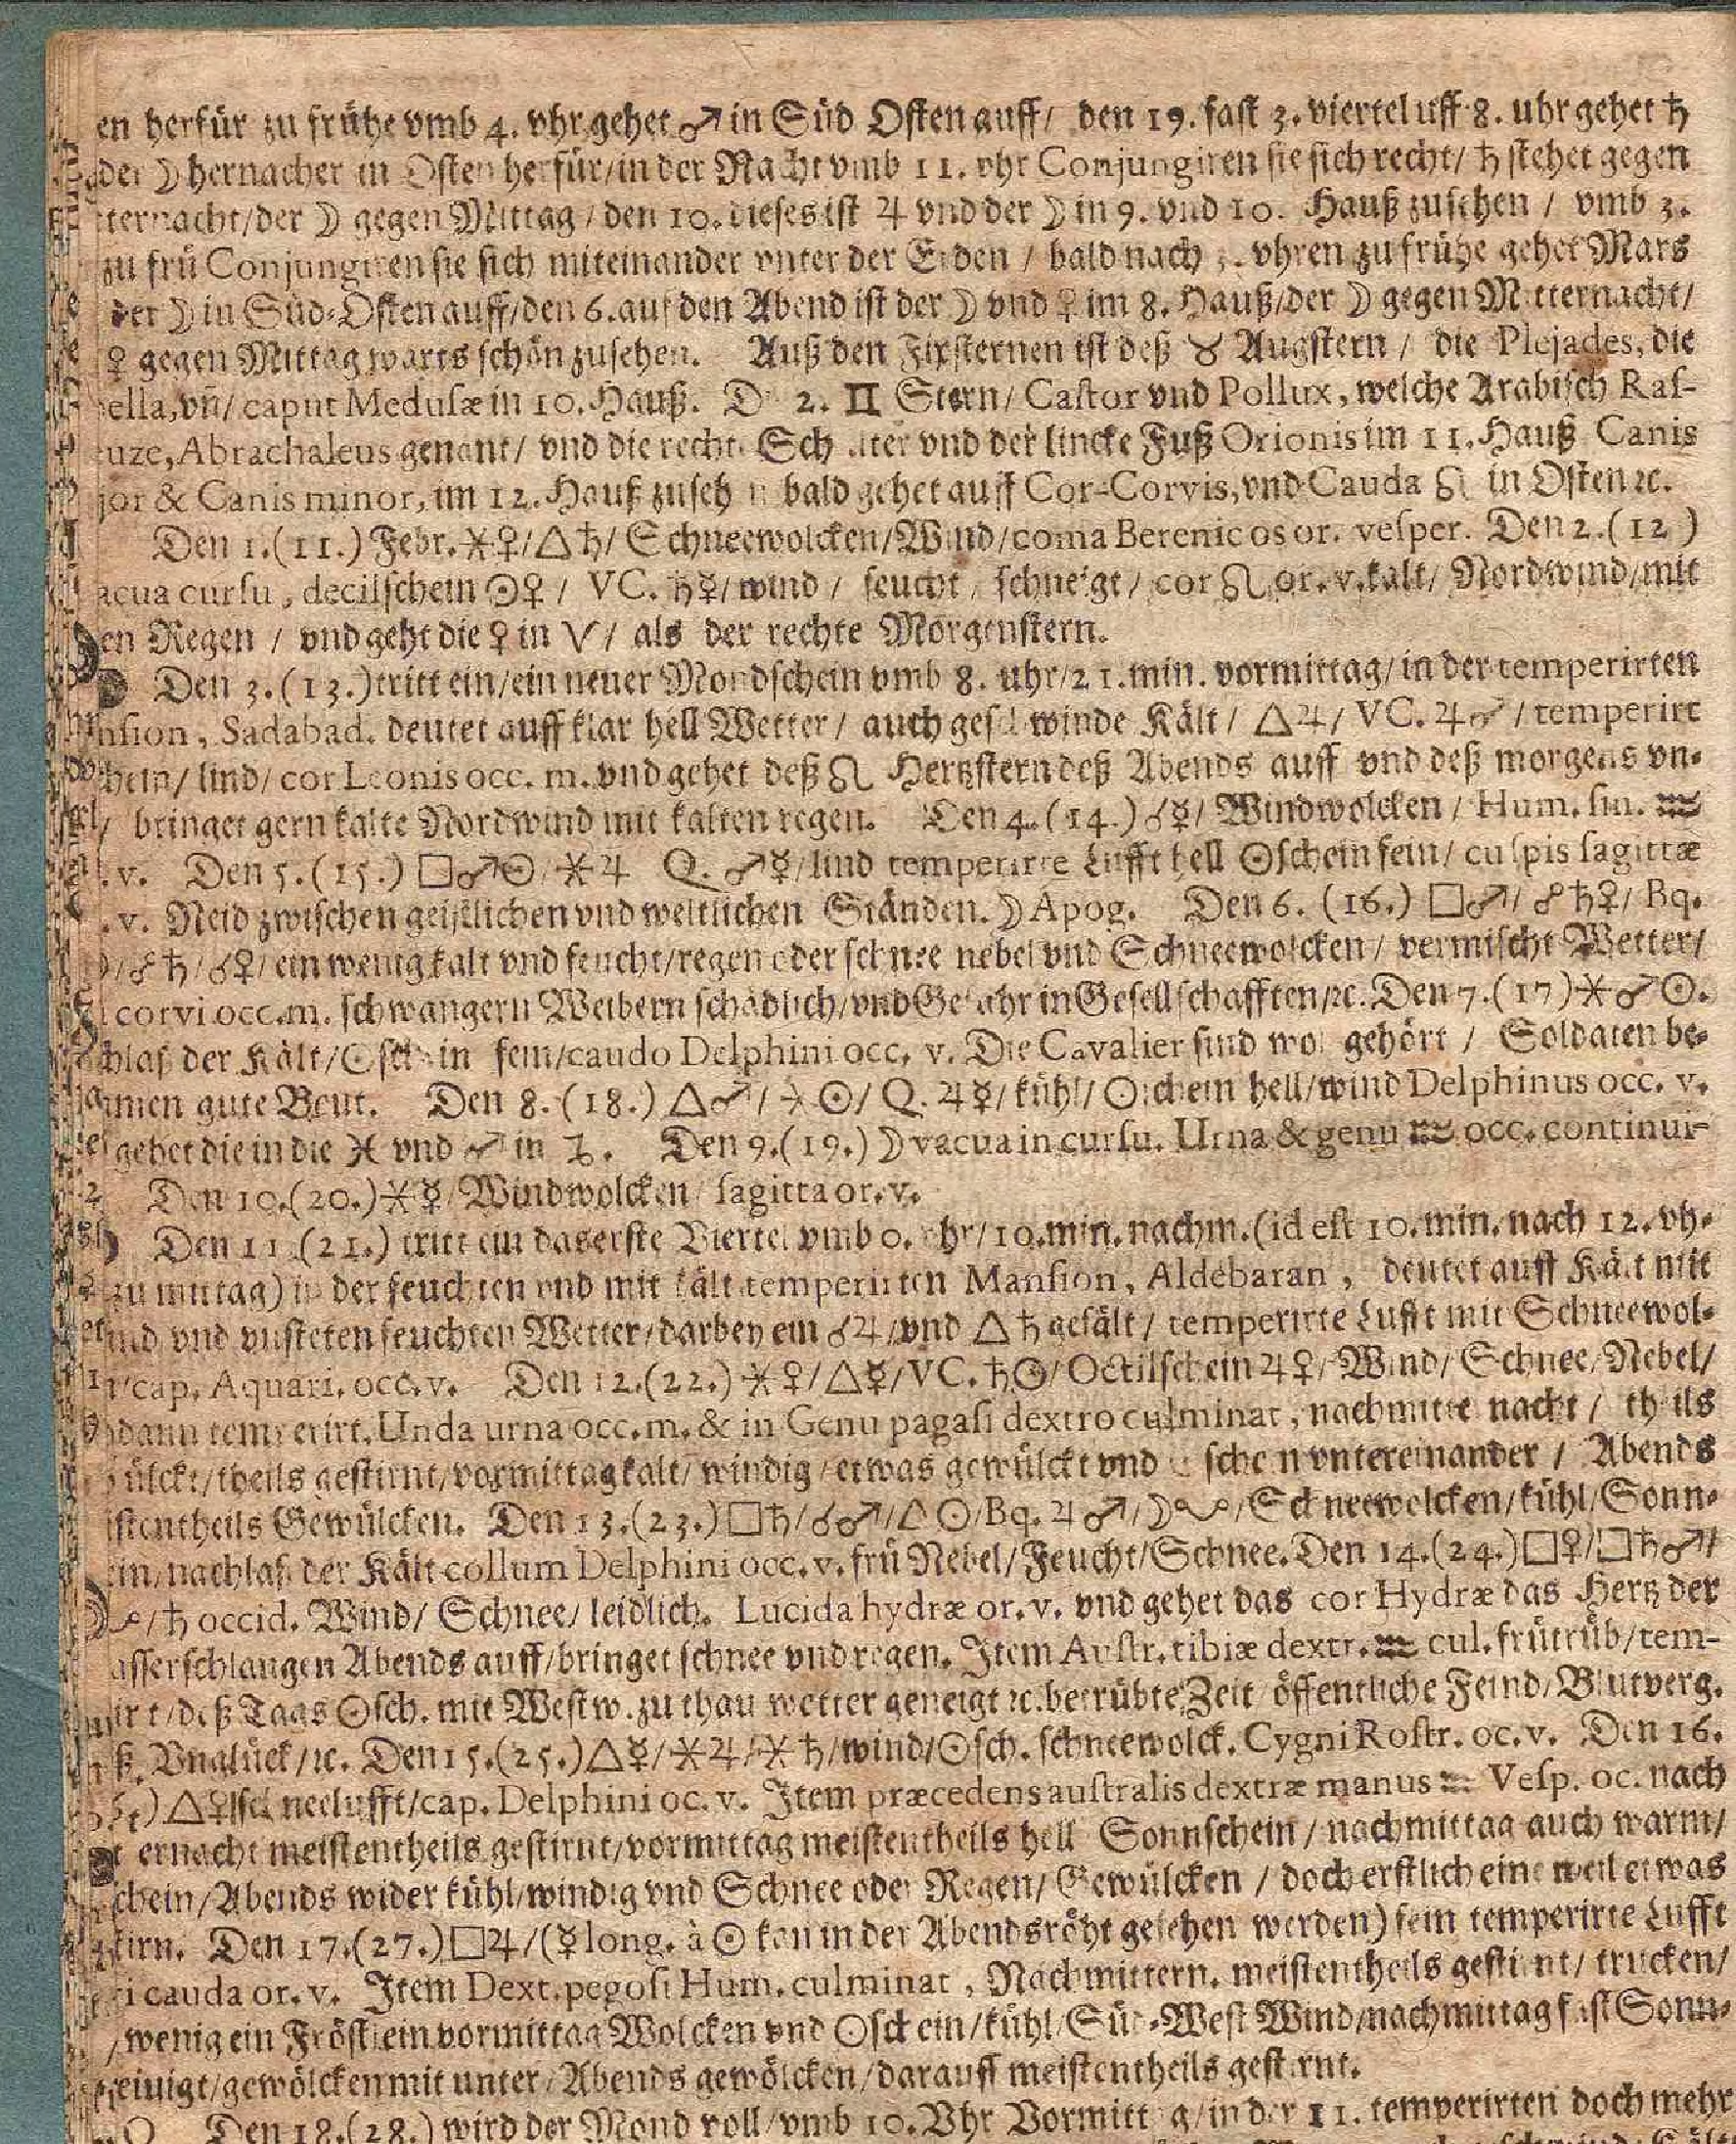 en herfür zu frühe vmb 4. vhr gehet ♂ in Süd Osten auff/ den 19. fast 3. viertel uff 8. uhr gehet ♄
der ☽ hernacher in Osten herfür/in der Nacht vmb 11. vhr Conjungiren sie sich recht/ ♄ stehet gegen
ternacht/der ☽ gegen Mittag/ den 10. dieses ist ♃ vnd der ☽ in 9. vnd 10. Hauß zusehen / vmb 3.
zu frü Conjungiren sie sich miteinander vnter der Erden / bald nach vhren zu frühe gehet Mars
der ☽ in Süd-Osten auff/den 6. auf den Abend ist der ☽ vnd ♀ im 8. Hauß/der ☽ gegen Mitternacht/
♀ gegen Mittag warts schön zusehen. Auß den Fixsternen ist deß ♉ Augstern / die Plejades, die
ella, vñ/ caput Medusæ in 10. Hauß. D 2. ♊ Stern/ Castor vnd Pollux, welche Arabisch Ras-
uze, Abrachaleus genant/ vnd die recht Sch lter vnd der lincke Fuß Orionis im 11. Hauß Canis
jor & Canis minor, im 12. Hauß zuseh n bald gehet auff Cor-Corvis, vnd Cauda ♌ in Osten ꝛc.
Den 1.(11.) Febr. ⚹♀/△♄/ Schneewolcken/Wind/coma Berenicos or. vesper. Den 2.(12)
acua cursu, decilschein ☉♀/ VC. ♄☿/wind / feucht/ schneigt/ cor ♌ or. v. kalt/ Nordwind/mit
en Regen / vnd geht die ♀ in ♈/ als der rechte Morgenstern.
Den 3.(13.) tritt ein/ein neuer Mondschein vmb 8. uhr/21. min. vormittag/in der temperirten
nsion, Sadabad. deutet auff klar hell Wetter/ auch geschwinde Kält/ △♃/ VC. ♃♂/ temperirt
hein/ lind/ cor Leonis occ. m. vnd gehet deß ♌ Hertzstern deß Abends auff vnd deß morgens vn-
/ bringet gern kalte Nordwind mit kalten regen. Den 4.(14.) ☌☿/ Windwolcken / Hum. sin. ♒
. v. Den 5.(15.) □♂☉/⚹♃ Q. ♂☿/lind temperirte Lufft hell ☉schein fein/ cuspis sagittæ
. v. Neid zwischen geistlichen vnd weltlichen Ständen. ☽ Apog. Den 6. (16.) □♂/ ☍♄♀/ Bq.
/☍♄/☌♀/ein wenig kalt vnd feucht/regen oder schnee nebel vnd Schneewolcken / vermischt Wetter/
corvi occ. m. schwangern Weibern schädlich/vnd Gefahr in Gesellschafften/ꝛc. Den 7.(17) ⚹♂☉.
chlaß der Kält/☉schein fein/caudo Delphini occ, v. Die Cavalier sind wol gehört / Soldaten be-
mmen gute Beut. Den 8. (18.) △♂/ ☉/ Q. ♃☿/ kühl/ ☉schein hell/wind Delphinus occ. v.
gehet die in die ♓ vnd ♂ in ♑. Den 9.(19.) ☽ vacua in cursu. Urna & genu ♒ occ. continui-
Den 10.(20.) ⚹☿/Windwolcken/ sagitta or. v.
Den 11.(21.) tritt ein das erste Viertel vmb 0. vhr/10. min. nachm. (id est 10. min. nach 12. vh-
zu mittag) in der feuchten vnd mit kält temperirten Mansion, Aldebaran, deutet auff Kält mit
ind vnd vnsteten feuchten Wetter/darbey ein ☌♃/vnd △♄ gefält/ temperirte Lufft mit Schneewol-
/cap. Aquari. occ. v. Den 12.(22.) ⚹♀/△☿/VC. ♄☉/Octilschein ♃♀/Wind/ Schnee/Nebel/
dann temperirt. Unda urna occ. m. & in Genu pagasi dextro culminat, nachmitte nacht / theils
ülckt/theils gestirnt/vormittag kalt/windig/etwas gewülckt vnd schein vntereinander / Abends
istentheils Gewülcken. Den 13.(23.) □♄/☌♂/△☉/Bq. ♃♂/☽ /Schneewolcken/kühl/Sonn-
in/nachlaß der Kält collum Delphini occ. v. frü Nebel/Feucht/Schnee. Den 14.(24.) □♀/□♄♂/
/♄ occid. Wind/ Schnee/ leidlich. Lucida hydræ or. v. vnd gehet das cor Hydræ das Hertz der
asserschlangen Abends auff/bringet schnee vnd regen. Item Austr. tibiæ dextr. ♒ cul. frü trüb/tem-
irt/deß Tags ☉sch. mit Westw. zu thau wetter geneigt ꝛc. betrübte Zeit/öffentliche Feind/Blutverg.
ß. Vnglück/ꝛc. Den 15.(25.) △☿/⚹♃/⚹♄/wind/☉sch. schneewolck. Cygni Rostr. oc. v. Den 16.
) △♀/schneelufft/cap. Delphini oc. v. Item præcedens australis dextræ manus ♒ Vesp. oc. nach
ernacht meistentheils gestirnt/vormittag meistentheils hell Sonnschein / nachmittag auch warm/
chein/Abends wider kühl/windig vnd Schnee oder Regen/ Gewülcken / doch erstlich eine weil etwas
tirn. Den 17.(27.) □♃/(☿ long. à ☉ kan in der Abendsröht gesehen werden) fein temperirte Lufft
i cauda or. v. Item Dext. pegosi Hum. culminat, Nachmittern. meistentheils gestirnt/ trucken/
/wenig ein Fröstlein vormittag Wolcken vnd ☉schein/kühl/Süd-West Wind/nachmittag fast Sonn-
gewölcken mit unter/Abends gewölcken/darauff meistentheils gestirnt.
Den 18.(28.) wird der Mond voll/vmb 10. Vhr Vormittag/in der 11. temperirten doch mehr